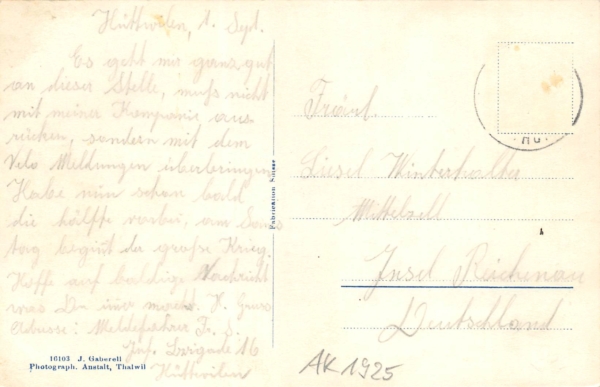 Hüttwilen, 1. Sept.
Es geht mir ganz gut
an dieser Stelle, muß nicht
mit meiner Kompanie aus
rücken, sondern mit dem
Velo Meldungen überbringen
Habe nun schon bald
die hälfte vorbei, am Sonn
tag begint der große Krieg.
Hoffe auf baldige Nachricht
was Du imer machst. H. Gruss
Adresse: Meldefahrer
Inf. Brigade 16
Hüttwilen
16103 J. Gaberell
Photograph. Anstalt, Thalwil
Fabrication Suisse
Fräul.
Liesel Winterhalter
Mittelzell
Insel Reichenau
Deutschland
AK 1925